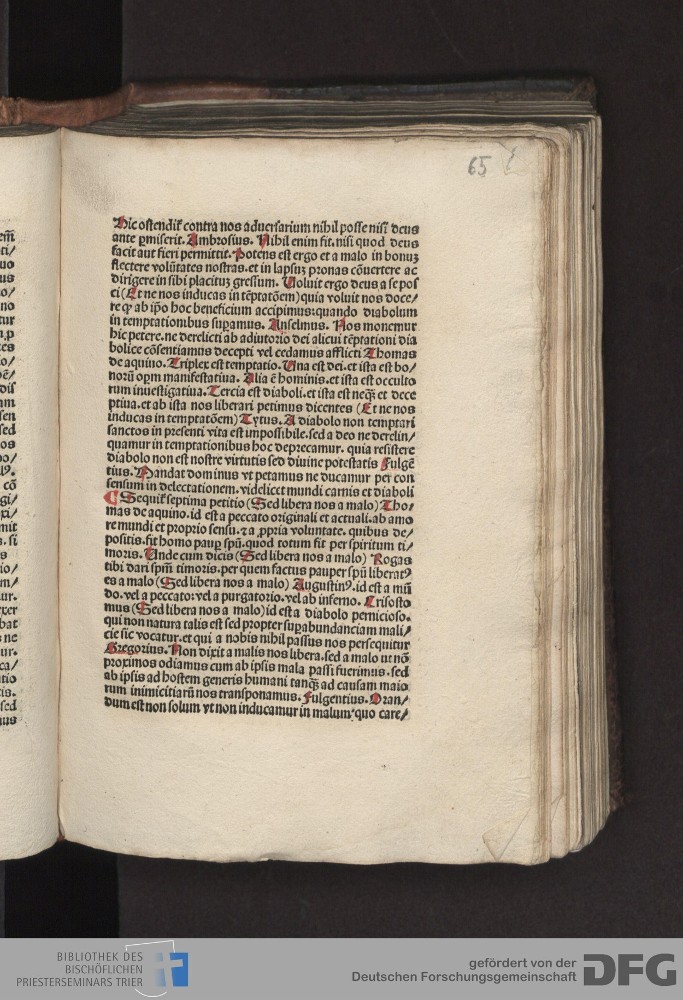 65
Hic ostendit᷑ contra nos adversarium nihil posse nisi deus
ante ꝑmiserit. Ambrosius. Nihil enim fit. nisi quod deus
facit aut fieri permittit. Potens est ergo et a malo in bonuꝫ
flectere volūtates nostras. et in lapsuꝫ pronas cōuertere ac
dirigere in sibi placituꝫ gressum. Uoluit ergo deus a se pos
ci (Et ne nos inducas in tēptatōem) quia voluit nos doce/
re ꝙ ab ip̄o hoc beneficium accipimus: quando diabolum
in temptationibus suꝑamus. Anselmus. Nos monemur
hic petere. ne derelicti ab adiutorio dei alicui tēptationi dia
bolice cōsentiamus decepti vel cedamus afflicti Thomas
de aquino. Triplex est temptatio. Una est dei. et ista est bo/
norū oꝑm manifestatiua. Alia ē hominis. et ista est occulto
rum inuestigatiua. Tercia est diaboli. et ista est neqꝫ et dece
ptiua. et ab ista nos liberari petimus dicentes (Et ne nos
inducas in temptatōem) Tytus. A diabolo non temptari
sanctos in presenti vita est impossibile. sed a deo ne derelin/
quamur in temptationibus hoc deprecamur. quia resistere
diabolo non est nostre virtutis sed diuine potestatis Fulgē
tius. Mandat dominus vt petamus ne ducamur per con
sensum in delectationem. videlicet mundi carnis et diaboli
¶ Sequit᷑ septima petitio (Sed libera nos a malo) Tho/
mas de aquino. id est a peccato originali et actuali. ab amo
re mundi et proprio sensu. ⁊ a ꝓpria voluntate. quibus de/
positis. fit homo pauꝑ spū. quod totum fit per spiritum ti/
moris. Unde cum dicis (Sed libera nos a malo) Rogas
tibi dari spm̄ timoris. per quem factus pauper spū liberatꝰ
es a malo (Sed libera nos a malo) Augustinꝰ. id est a mū
do. vel a peccato: vel a purgatorio. vel ab inferno. Crisosto
mus (Sed libera nos a malo) id est a diabolo pernicioso.
qui non natura talis est sed propter suꝑabundanciam mali/
cie sic vocatur. et qui a nobis nihil passus nos persequitur
Gregorius. Non dixit a malis nos libera. sed a malo ut nō
proximos odiamus cum ab ipsis mala passi fuerimus. sed
ab ipsis ad hostem generis humani tanqꝫ ad causam maio
rum inimicitiarū nos transponamus. Fulgentius. Oran/
dum est non solum vt non inducamur in malum: quo care/
BIBLIOTHEK DES
BISCHÖFLICHEN
PRIESTERSEMINARS TRIER
gefördert von der
Deutschen Forschungsgemeinschaft
DFG